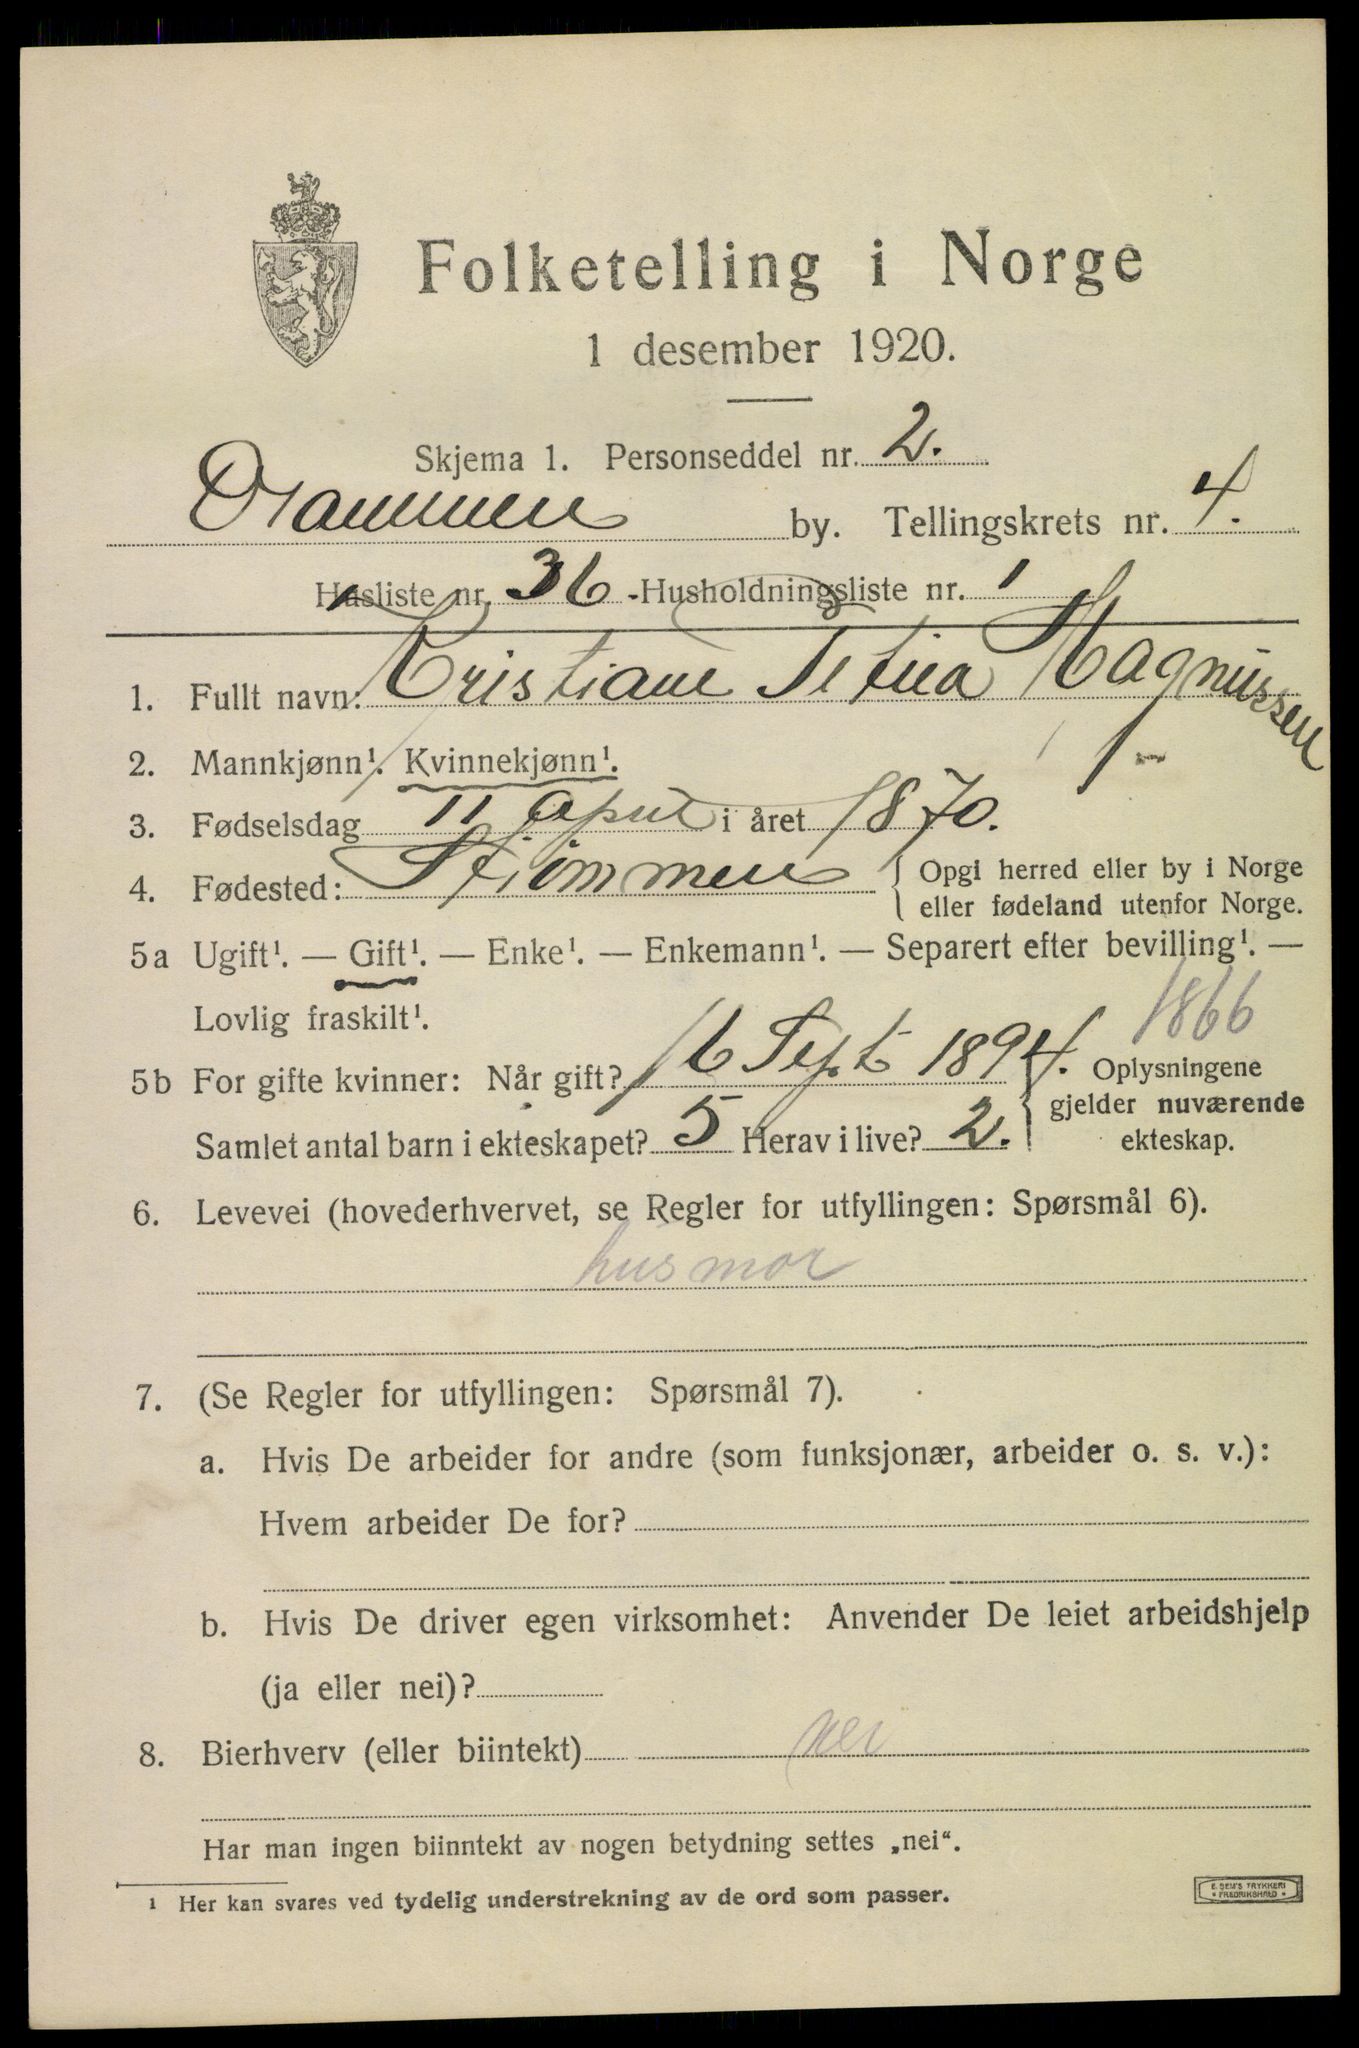 Folketelling i Norge
1 desember 1920.
Skjema 1. Personseddel nr. 2.
Drammen by. Tellingskrets nr. 4.
Husliste nr. 36 Husholdningsliste nr. 1
1. Fullt navn: Kristiane Magnussen
2. Mannkjønn¹. Kvinnekjønn¹.
3. Fødselsdag 11 April i året 1870.
4. Fødested: Strømmen { Opgi herred eller by i Norge
eller fødeland utenfor Norge.
5a Ugift¹. — Gift¹. — Enke¹. — Enkemann¹. — Separert efter bevilling¹. —
Lovlig fraskilt¹.
1866
5b For gifte kvinner: Når gift? 16 Sept 1894. Oplysningene
gjelder nuværende
Samlet antal barn i ekteskapet? 5 Herav i live? 2. ekteskap.
6. Levevei (hovederhvervet, se Regler for utfyllingen: Spørsmål 6).
husmor
7. (Se Regler for utfyllingen: Spørsmål 7).
a. Hvis De arbeider for andre (som funksjonær, arbeider o. s. v.):
Hvem arbeider De for?
b. Hvis De driver egen virksomhet: Anvender De leiet arbeidshjelp
(ja eller nei)?
8. Bierhverv (eller biintekt) nei
Har man ingen biinntekt av nogen betydning settes „nei“.
1 Her kan svares ved tydelig understrekning av de ord som passer.
E. SEM'S TRYKKERI
FREDRIKSHALD